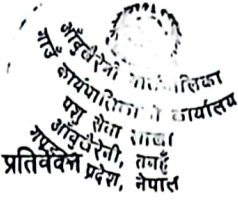 आँबुखैरेनी गाउँपालिका
गाउँ कार्यपालिकाको कार्यालय
पशु सेवा शाखा
आँबुखैरेनी, तनहुँ
प्रदेश, नेपाल
प्रतिवेदन